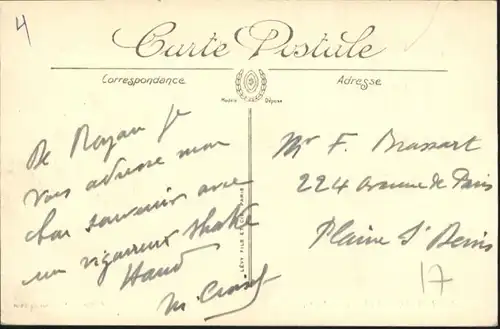 4
Carte Postale
Correspondance
Adresse
Modèle Déposé
De Royan je
vous adresse mon
bon souvenir avec
un vigoureux Shake
Hand
Mr F. Brassart
224 avenue de Paris
Plaine St Denis
17
LÉVY FILS ET CIE, PARIS